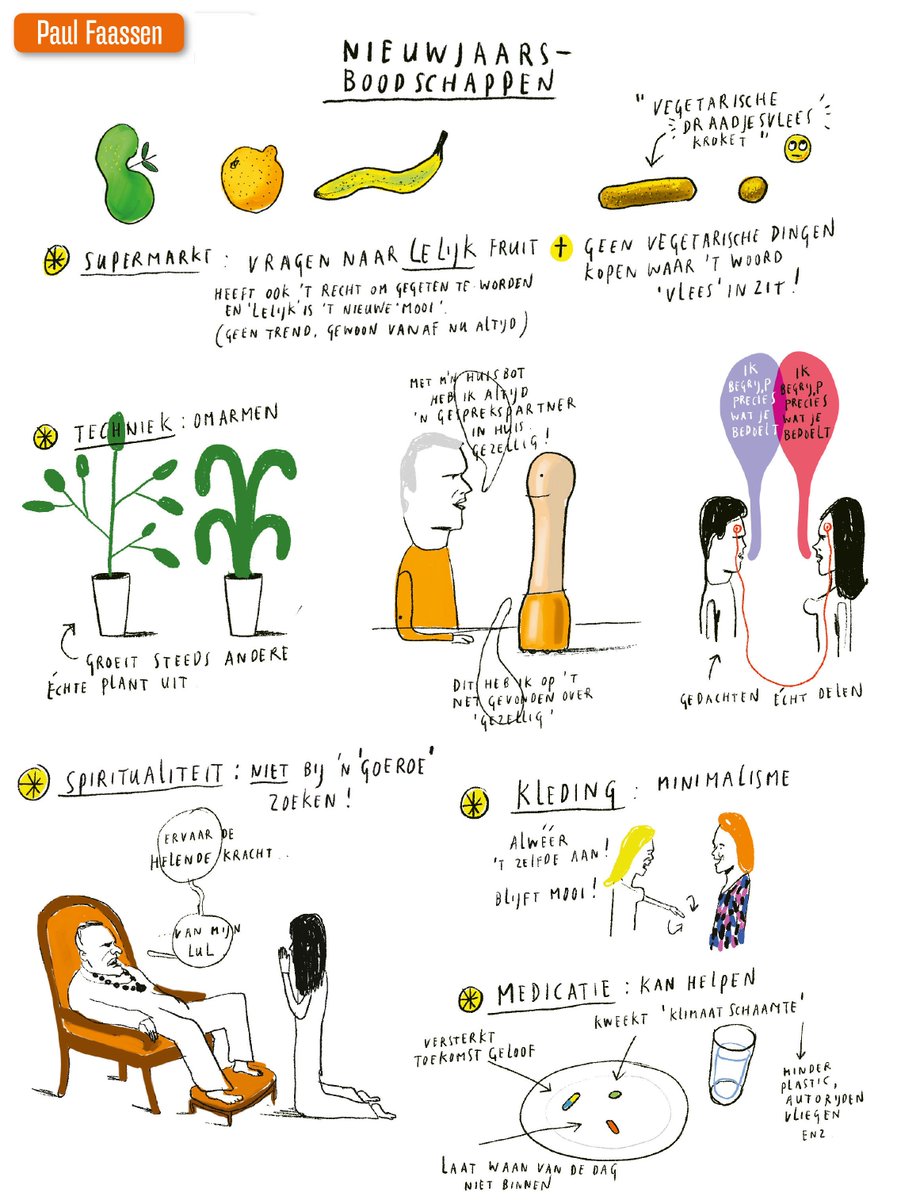 Paul Faassen
NIEUWJAARS-
BOODSCHAPPEN
"VEGETARISCHE
DRAADJESVLEES
KROKET"
SUPERMARKT: VRAGEN NAAR LELIJK FRUIT
HEEFT OOK 'T RECHT OM GEGETEN TE WORDEN
EN 'LELIJK' IS 'T NIEUWE 'MOOI'.
(GEEN TREND, GEWOON VANAF NU ALTIJD)
GEEN VEGETARISCHE DINGEN
KOPEN WAAR 'T WOORD
'VLEES' IN ZIT!
TECHNIEK: OMARMEN
GROEIT STEEDS ANDERE
ÉCHTE PLANT UIT.
MET M'N HUISBOT
HEB IK ALTIJD
'N GESPREKSPARTNER
IN HUIS.
GEZELLIG!
DIT HEB IK OP 'T
NET GEVONDEN OVER
'GEZELLIG'
IK
BEGRIJP
PRECIES
WAT JE
BEDOELT
IK
BEGRIJP
PRECIES
WAT JE
BEDOELT
GEDACHTEN ÉCHT DELEN
SPIRITUALITEIT: NIET BIJ 'N 'GOEROE'
ZOEKEN!
ERVAAR DE
HELENDE KRACHT..
...VAN MIJN
LUL
KLEDING: MINIMALISME
ALWÉÉR
'T ZELFDE AAN!
BLIJFT MOOI!
MEDICATIE: KAN HELPEN
VERSTERKT
TOEKOMST GELOOF
KWEEKT 'KLIMAAT SCHAAMTE'
MINDER
PLASTIC,
AUTORIJDEN
VLIEGEN
ENZ..
LAAT WAAN VAN DE DAG
NIET BINNEN